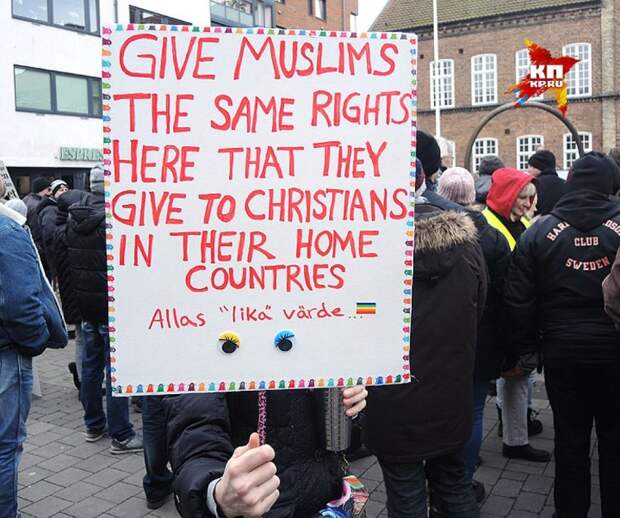 GIVE MUSLIMS
THE SAME RIGHTS
HERE THAT THEY
GIVE TO CHRISTIANS
IN THEIR HOME
COUNTRIES
Allas "lika" värde...
КП
KP.RU
ESPRE
CLUB
SWEDEN